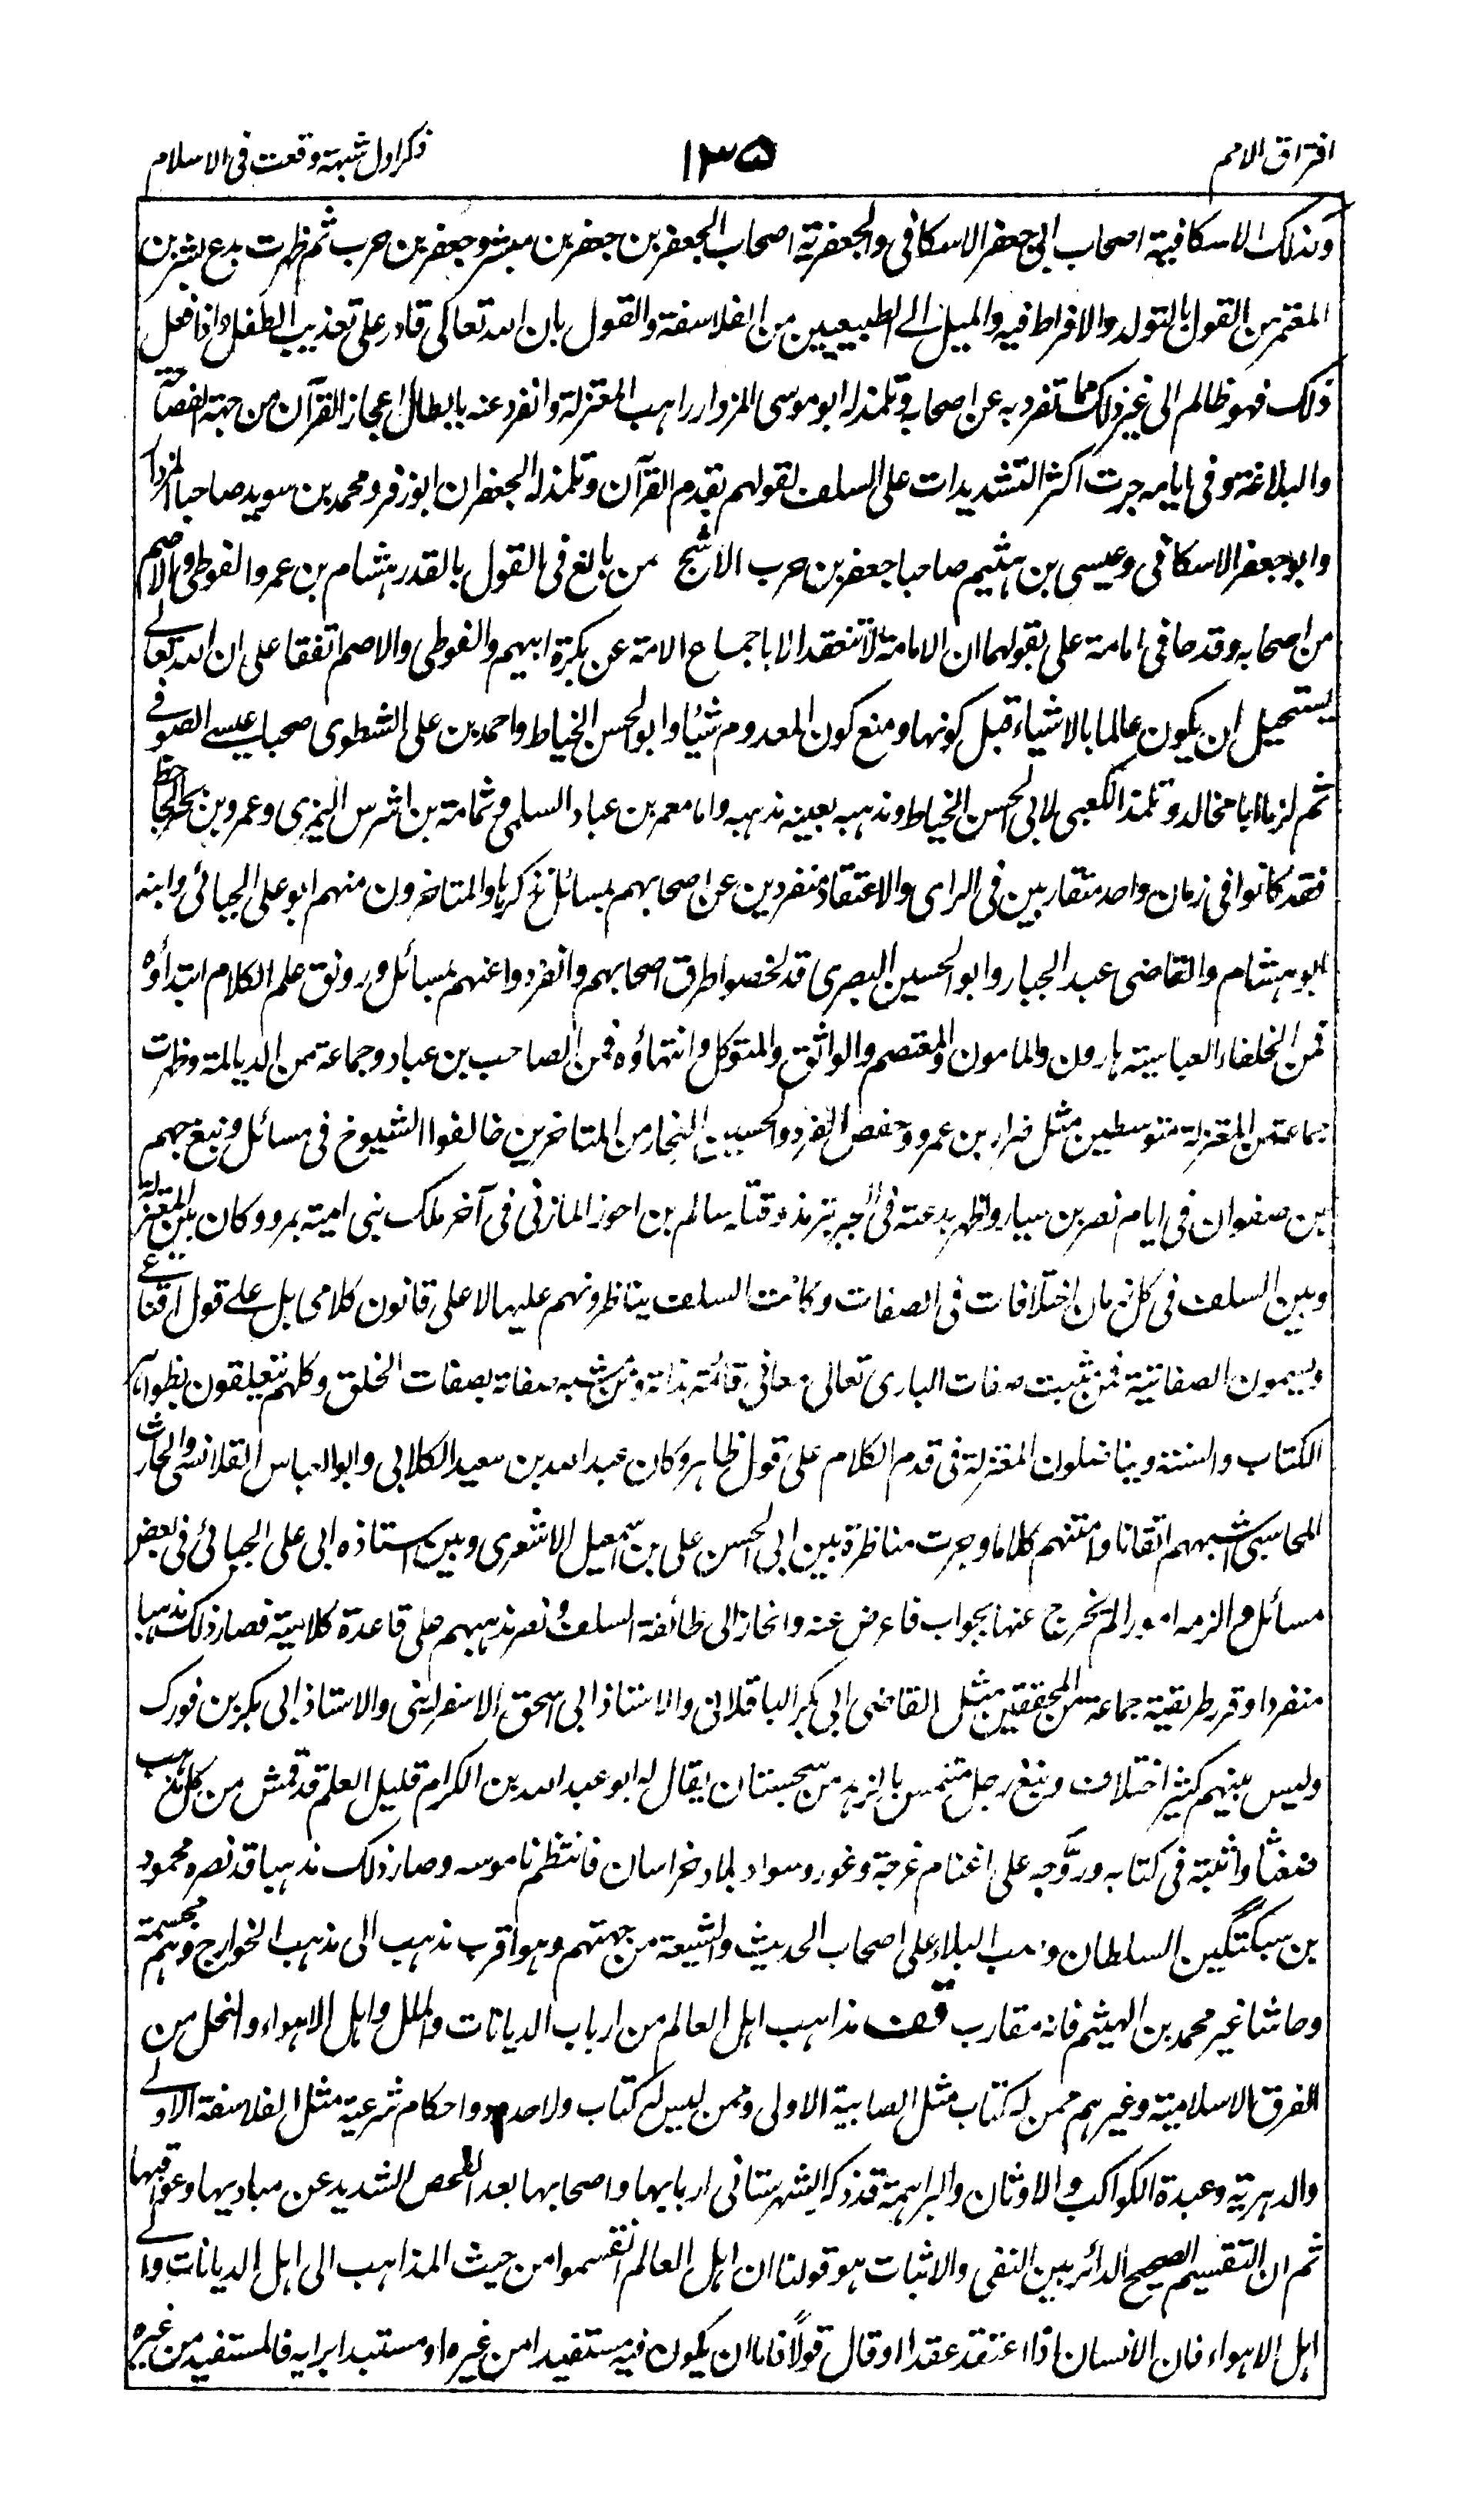 افتراق الامم
١٣٥
ذكر اول شبهة وقعت فى الاسلام
وكذلك الاسكافية اصحاب ابى جعفر الاسكافى والجعفرية اصحاب الجعفرين جعفر بن مبشر وجعفر بن حرب ثم ظهرت بدع بشر بن
المعتمر من القول بالتولد والافراط فيه والميل الى الطبيعيين من الفلاسفة والقول بان الله تعالى قادر على تعذيب الطفل واذا فعل
ذلك فهو ظالم الى غير ذلك مما تفرد به عن اصحابه وتلمذ له ابو موسى المزدار راهب المعتزلة وانفرد عنه بابطال اعجاز القرآن من جهة الفصاحة
والبلاغة وفى ايامه جرت اكثر التشديدات على السلف لقولهم بقدم القرآن وتلمذ له الجعفران ابو زفر ومحمد بن سويد صاحبا المزدار
وابو جعفر الاسكافى وعيسى بن هثيم صاحبا جعفر بن حرب الاشج من بالغ فى القول بالقدر هشام بن عمرو الفوطى والاصم
من اصحابه وقدحا فى امامة على بقولهما ان الامامة لا تنعقد الا باجماع الامة عن بكرة ابيهم والفوطى والاصم اتفقا على ان الله تعالى
يستحيل ان يكون عالما بالاشياء قبل كونها ومنع كون المعدوم شيئا وابو الحسن الخياط واحمد بن على الشطوى صحبا عيسى الصوفى
ثم لزما ابا مخالد وتلمذ الكعبى لابى الحسن الخياط ومذهبه بعينه مذهبه واما معمر بن عباد السلمى وثمامة بن اشرس النميرى وعمرو بن بحر الجاحظ
فقد كانوا فى زمان واحد متقاربين فى الراى والاعتقاد منفردين عن اصحابهم بمسائل نذكرها والمتاخرون منهم ابو على الجبائى وابنه
ابو هشام والقاضى عبد الجبار وابو الحسين البصرى قد لخصوا طرق اصحابهم وانفردوا عنهم بمسائل ورونق علم الكلام ابتداؤه
فمن الخلفاء العباسية هارون والمامون والمعتصم والواثق والمتوكل وانتهاؤه فمن الصاحب بن عباد وجماعة من الديالمة وظهرت
جماعة من المعتزلة متوسطين مثل ضرار بن عمرو وحفص الفرد والحسين النجار من المتاخرين خالفوا الشيوخ فى مسائل ونبغ جهم
بن صفوان فى ايام نصر بن سيار واظهر بدعته فى الجبر بترمذ وقتله سالم بن احوز المازنى فى آخر ملك بنى امية بمرو وكان بين المعتزلة
وبين السلف فى كل زمان اختلافات فى الصفات وكانت السلف يناظرونهم عليها لا على قانون كلامى بل على قول اقناعى
ويسمون الصفاتية فمن مثبت صفات البارى تعالى معانى قائمة بذاته ومن مشبه صفاته بصفات الخلق وكلهم يتعلقون بظواهر
الكتاب والسنة ويناضلون المعتزلة فى قدم الكلام على قول ظاهر وكان عبد الله بن سعيد الكلابى وابو العباس القلانسى والحارث
المحاسبى اشبههم اتقانا وامتنهم كلاما وجرت مناظرة بين ابى الحسن على بن اسمعيل الاشعرى وبين استاذه ابى على الجبائى فى بعض
مسائل والزمه امورا لم تخرج عنها بجواب فاعرض عنه وانحاز الى طائفة السلف ونصر مذهبهم على قاعدة كلامية فصار ذلك مذهبا
منفردا وقرر طريقته جماعة من المحققين مثل القاضى ابى بكر الباقلانى والاستاذ ابى اسحق الاسفراينى والاستاذ ابى بكر بن فورك
وليس بينهم كثير اختلاف ونبغ رجل متنمس بالزهد من سجستان يقال له ابو عبد الله بن الكرام قليل العلم قد قمش من كل مذهب
ضغثا واثبته فى كتابه وروّجه على اغنام غرجة وغور وسواد بلاد خراسان فانتظم ناموسه وصار ذلك مذهبا قد نصره محمود
بن سبكتگين السلطان وصب البلاء على اصحاب الحديث والشيعة من جهتهم وهو اقرب مذهب الى مذهب الخوارج وهم مجسمة
وحاشا غير محمد بن الهيثم فانه مقارب قف مذاهب اهل العالم من ارباب الديانات والملل واهل الاهواء والنحل من
الفرق الاسلامية وغيرهم ممن له كتاب مثل الصابية الاولى وممن ليس له كتاب ولا حدود واحكام شرعية مثل الفلاسفة الاولى
والدهرية وعبدة الكواكب والاوثان والبراهمة قد ذكر الشهرستانى اربابها واصحابها بعد الفحص الشديد عن مباديها وعواقبها
ثم ان التقسيم الصحيح الدائر بين النفى والاثبات هو قولنا ان اهل العالم انقسموا من حيث المذاهب الى اهل الديانات والى
اهل الاهواء فان الانسان اذا اعتقد عقدا او قال قولًا فاما ان يكون فيه مستفيدا من غيره او مستبدا برايه فالمستفيد من غيره